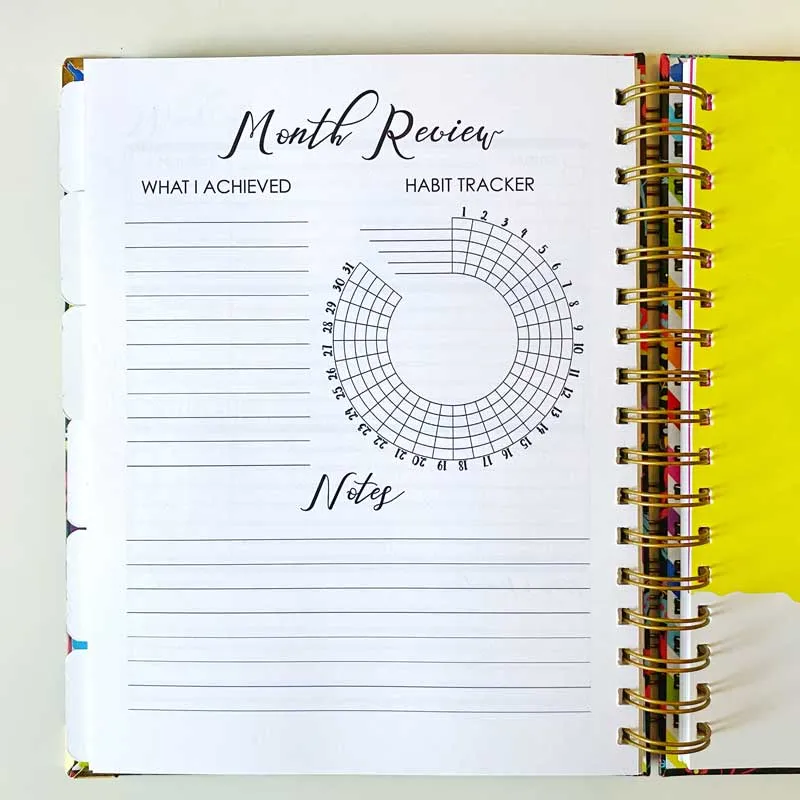 Month Review
WHAT I ACHIEVED
HABIT TRACKER
1 2 3 4 5 6 7 8 9 10 11 12 13 14 15 16 17 18 19 20 21 22 23 24 25 26 27 28 29 30 31
Notes